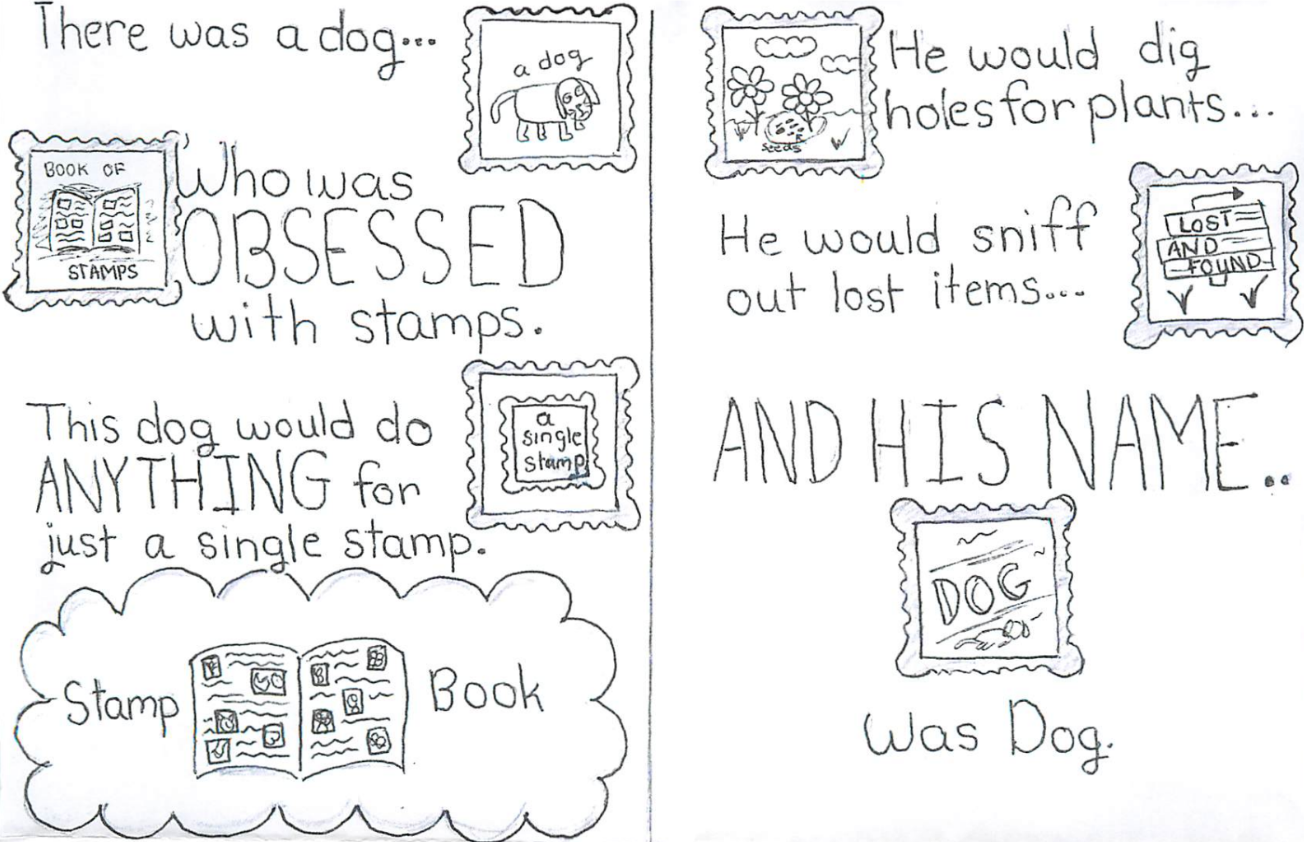 There was a dog...
a dog
BOOK OF
STAMPS
Who was
OBSESSED
with stamps.
This dog would do
ANYTHING for
just a single stamp.
a
single
stamp
Stamp Book
He would dig
holes for plants...
seeds
He would sniff
out lost items...
LOST
AND
FOUND
AND HIS NAME..
DOG
was Dog.